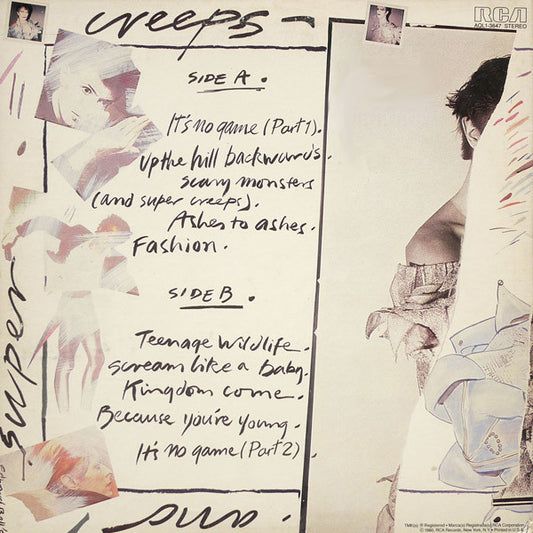 creeps
RCA
AQL1-3647 STEREO
SIDE A.
It's no game (Part 1).
Up the hill backwards.
Scary monsters
(and super creeps).
Ashes to ashes.
Fashion.
SIDE B.
Teenage Wildlife.
Scream like a Baby.
Kingdom come.
Because you're young.
It's no game (Part 2)
super
and
TMK(s) ® Registered • Marca(s) Registrada(s) RCA Corporation
© 1980, RCA Records, New York, N.Y. • Printed in U.S.A.